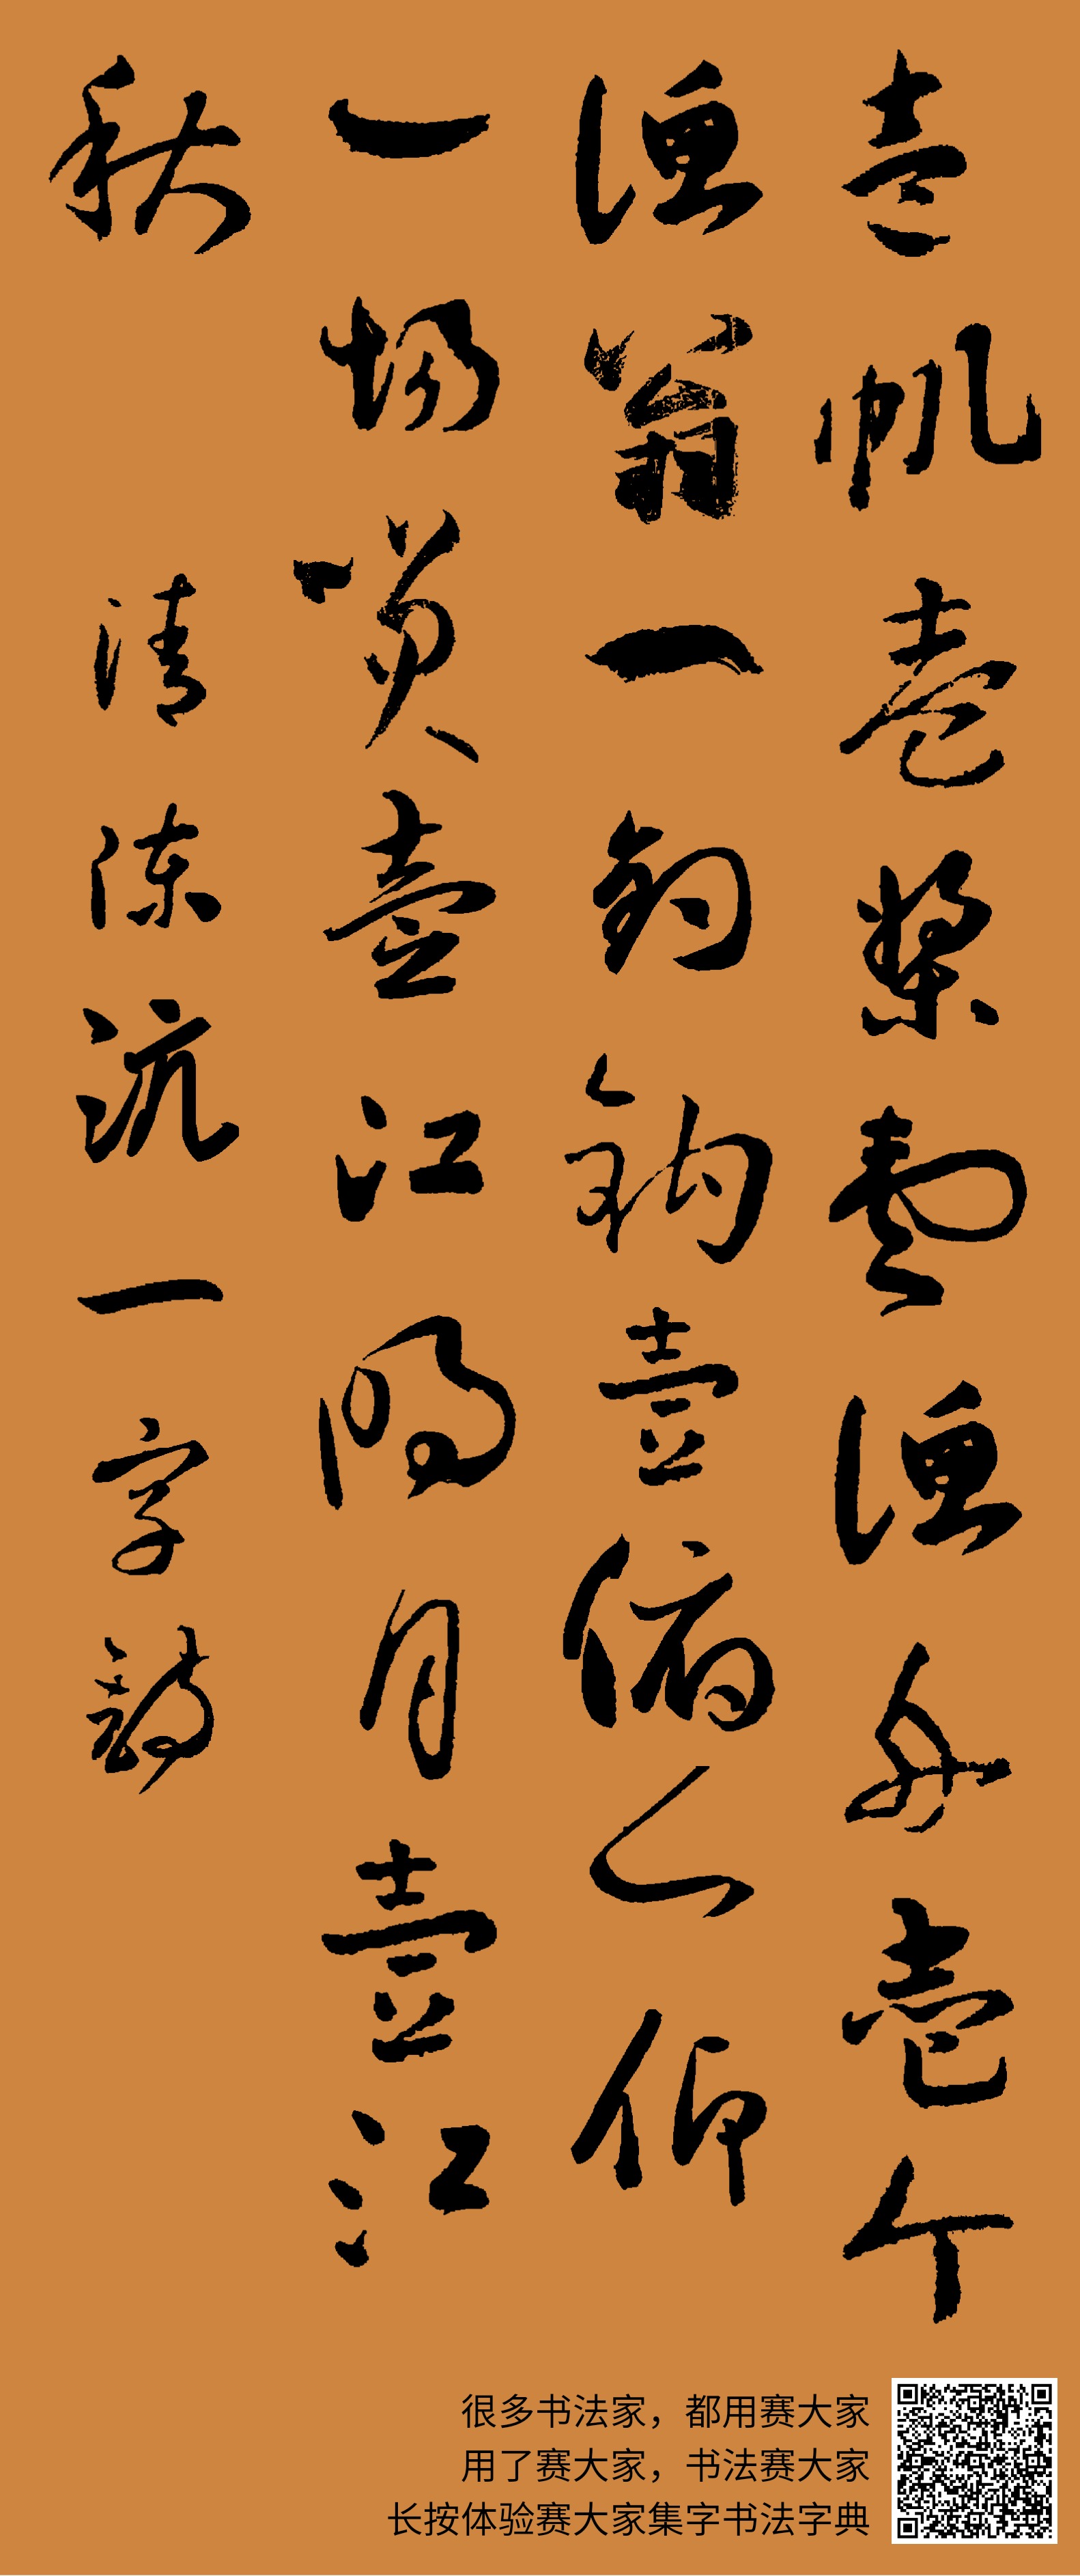 壹帆壹桨壹渔舟壹个
渔翁一钓钩壹俯一仰
一场笑壹江明月壹江
秋
清陈沆一字诗
很多书法家，都用赛大家
用了赛大家，书法赛大家
长按体验赛大家集字书法字典